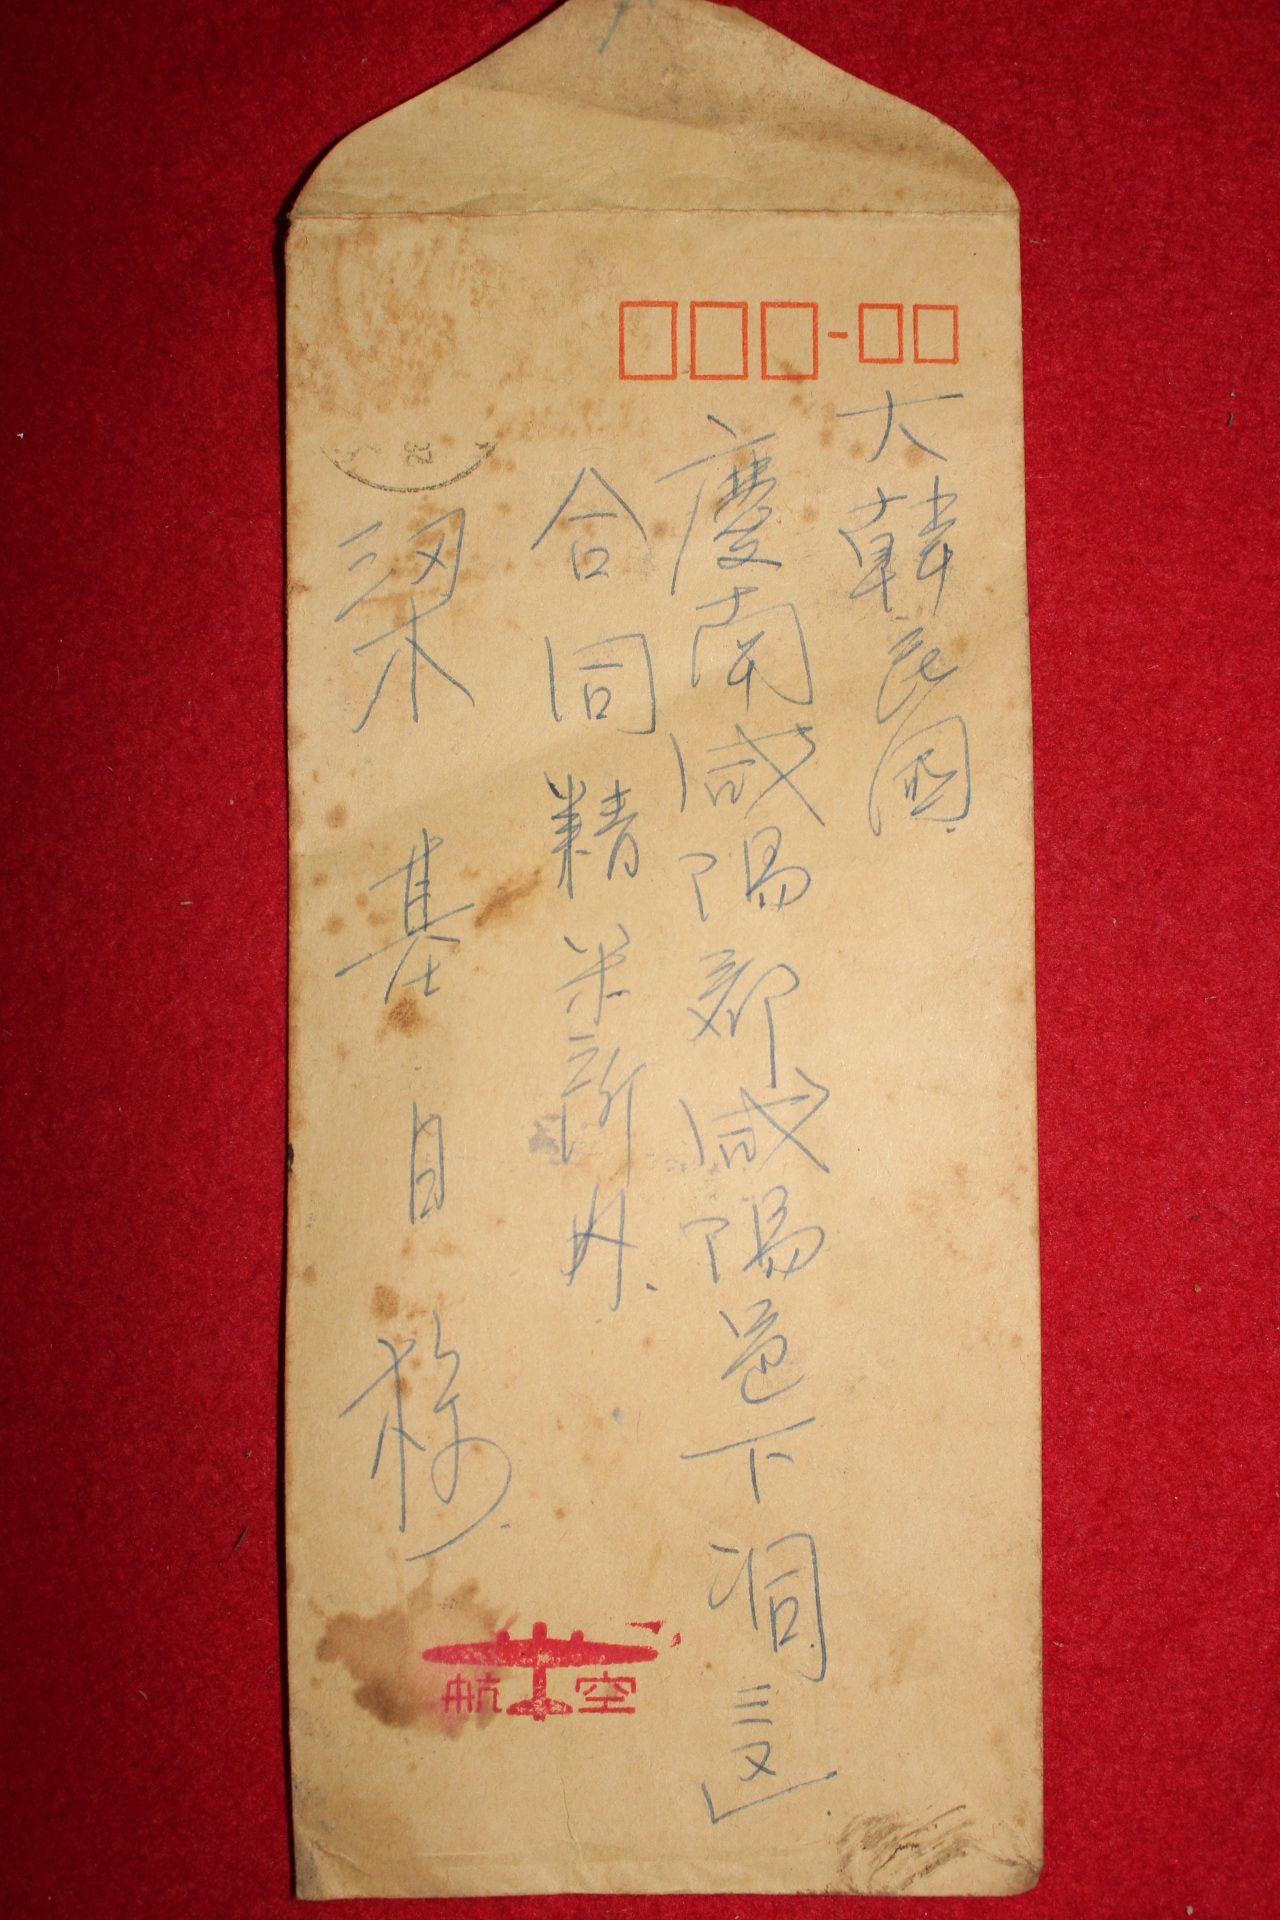 大韓民國
慶南咸陽郡咸陽邑下洞三区
合同精米所内.
梁基 様.
航空